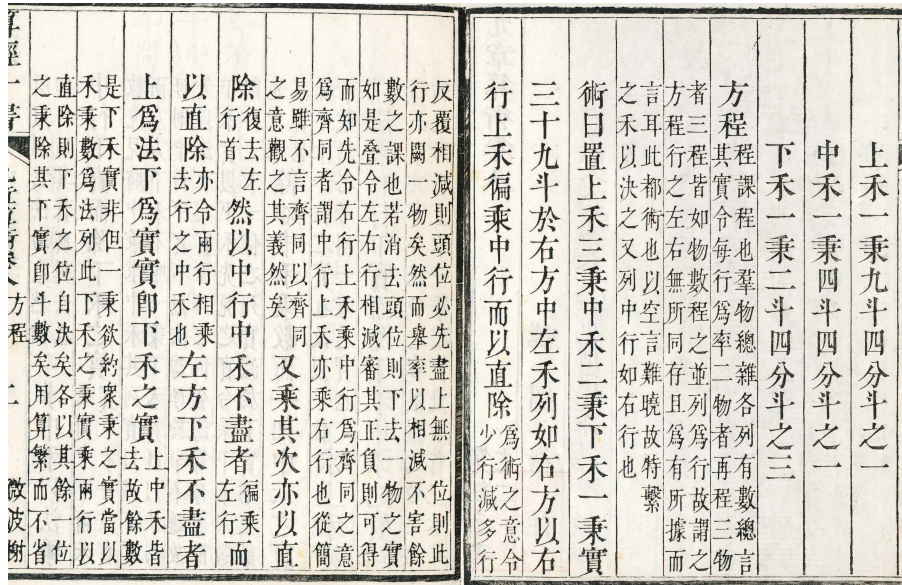 上禾一秉九斗四分斗之一
中禾一秉四斗四分斗之一
下禾一秉二斗四分斗之三
方程程課程也羣物總雜各列有數總言
其實令每行爲率二物者再程三物
者三程皆如物數程之並列爲行故謂之
方程行之左右無所同存且爲有所據而
言耳此都術也以空言難曉故特繫
之禾以決之又列中行如右行也
術曰置上禾三秉中禾二秉下禾一秉實
三十九斗於右方中左禾列如右方以右
行上禾徧乘中行而以直除爲術之意令少行減多行
反覆相減則頭位必先盡上無一位則此
行亦闕一物矣然而舉率以相減不害餘
數之課也若消去頭位則下去一物之實
如是疊令左右行相減審其正負則可得
而知先令右行上禾乘中行爲齊同之意
爲齊同者謂中行上禾亦乘右行也從簡
易雖不言齊同以齊同
之意觀之其義然矣又乘其次亦以直
除復去左行首然以中行中禾不盡者徧乘左行而
以直除亦令兩行相乘去行之中禾也左方下禾不盡者
上爲法下爲實實卽下禾之實上中禾皆去故餘數
是下禾實非但一秉欲約衆秉之實當以
禾秉數爲法列此下禾之秉實乘兩行以
直除則下禾之位自決矣各以其餘一位
之秉除其下實卽斗數矣用算繁而不省
方程 二 微波榭